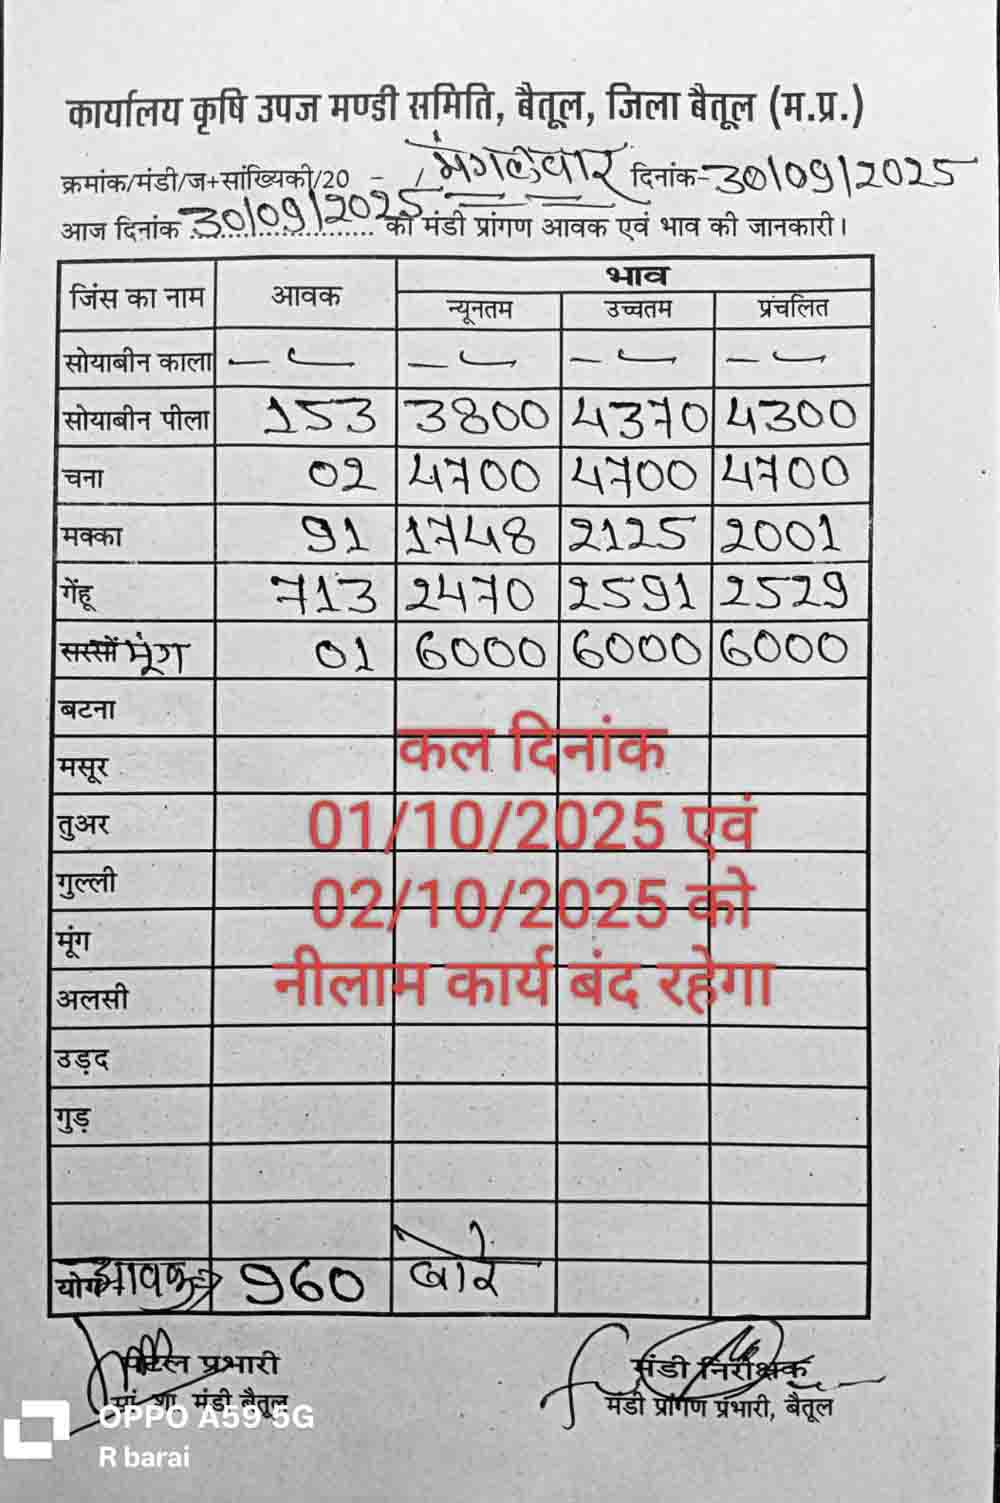 कार्यालय कृषि उपज मण्डी समिति, बैतूल, जिला बैतूल (म.प्र.)
क्रमांक/मंडी/ज+सांख्यिकी/20 - / मंगलवार दिनांक-30/09/2025
आज दिनांक 30/09/2025 की मंडी प्रांगण आवक एवं भाव की जानकारी।
जिंस का नाम आवक भाव
न्यूनतम उच्चतम प्रचलित
सोयाबीन काला — — — —
सोयाबीन पीला 153 3800 4370 4300
चना 02 4700 4700 4700
मक्का 91 1748 2125 2001
गेंहू 713 2470 2591 2529
सरसों मूंग 01 6000 6000 6000
बटना
मसूर
तुअर
गुल्ली
मूंग
अलसी
उड़द
गुड़
कल दिनांक
01/10/2025 एवं
02/10/2025 को
नीलाम कार्य बंद रहेगा
योग आवक 960 बोरे
प्रभारी मंडी निरीक्षक
मंडी बैतूल मंडी प्रांगण प्रभारी, बैतूल
OPPO A59 5G
R barai